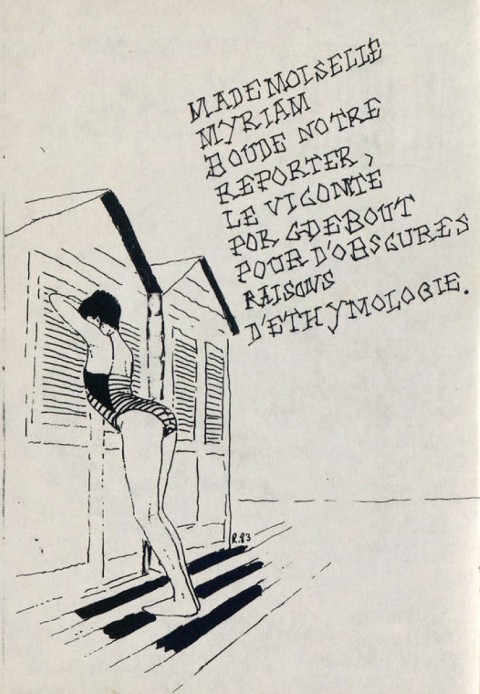 MADEMOISELLE
MYRIAM
BOUDE NOTRE
REPORTER,
LE VICOMTE
POR GDEBOUT
POUR D'OBSCURES
RAISONS
D'ETHYMOLOGIE.
R.83